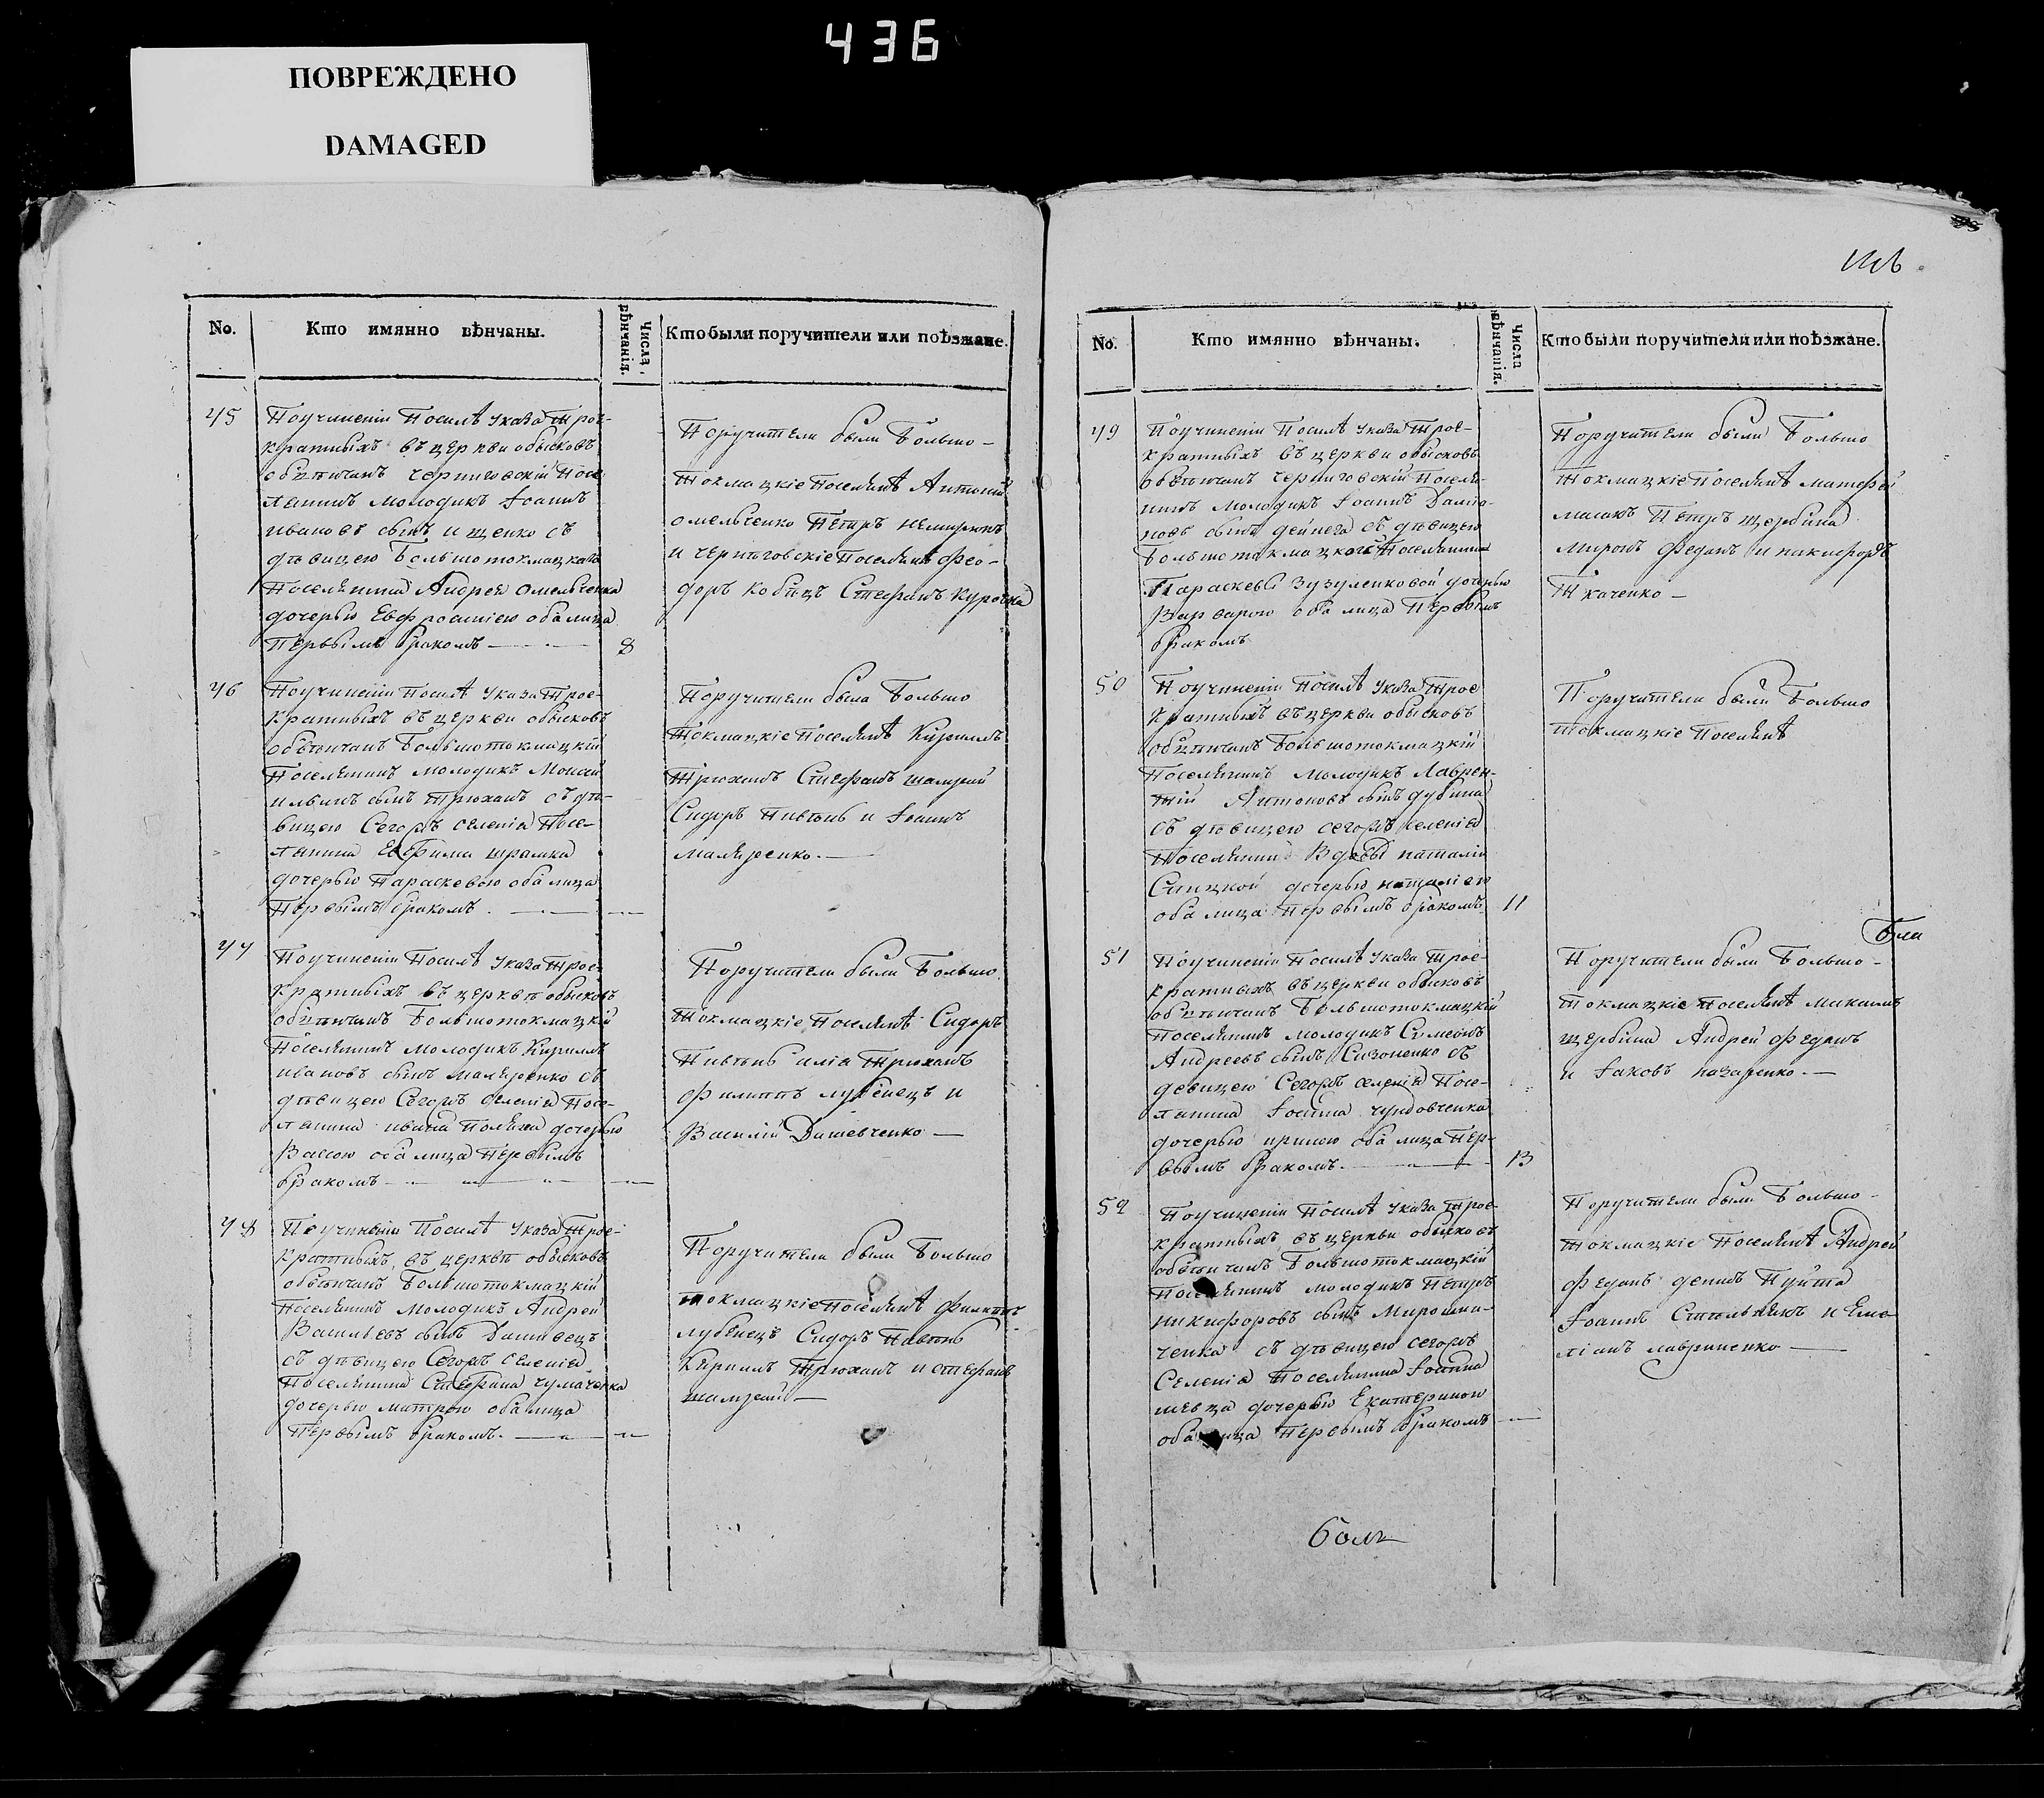 436
ПОВРЕЖДЕНО
DAMAGED
No.
Кто имянно вѣнчаны.
Числа вѣнчанія.
Кто были поручители или поѣзжане.
45
Поучиненіи Посилѣ указа трое-
кратныхъ въ церкви обысковъ
обвѣнчанъ черниговскій Посе
лянинъ молодикъ Іоаннъ
ивановъ сынъ ищенко съ
дѣвицею Большотокмацкаго
Поселянина Андрея омельченка
дочерью Евфросиніею оба лица
Первымъ бракомъ
8
Поручители были Большо-
токмацкіе Поселянѣ Антоній
омельченко Петръ немирюкъ
и черниговскіе Поселянѣ Фео-
доръ Кобецъ Стефанъ Курочка
46
Поучиненіи Посилѣ указа трое-
кратныхъ въ церкви обысковъ
обвѣнчанъ Большотокмацкій
Поселянинъ молодикъ Моисей
ильинъ сынъ трюханъ съ дѣ-
вицею Сегожъ селенія Посе-
лянина Ефима шрамка
дочерью Параскевою оба лица
Первымъ бракомъ.
Поручители была Большо
токмацкіе Поселянѣ Кириллъ
трюханъ Стефанъ шамрай
Сидоръ Пивень и Іоаннъ
маляренко.
47
Поучиненіи Посилѣ указа трое-
кратныхъ въ церквѣ обысковъ
обвѣнчанъ Большотокмацкій
Поселянинъ молодикъ Кириллъ
ивановъ сынъ маляренко съ
дѣвицею Сегожъ селенія Посе-
лянина ивана Поляка дочерью
Вассою оба лица Первымъ
бракомъ
Поручители были Большо
токмацкіе Поселянѣ Сидоръ
Пивень илія трюханъ
Филиппъ лубенецъ и
Василій Дашевченко
48
Поучиненіи Посилѣ указа трое-
кратныхъ въ церквѣ обысковъ
обвѣнчанъ Большотокмацкій
Поселянинъ молодикъ Андрей
Васильевъ сынъ Дашевецъ
съ дѣвицею Сегожъ селенія
Поселянина Стефана чумаченка
дочерью матрою оба лица
Первымъ бракомъ.
Поручители были Большо
токмацкіе Поселянѣ Филиппъ
лубенецъ Сидоръ Пивень
Кириллъ трюханъ и стефанъ
шамрай
No.
Кто имянно вѣнчаны.
Числа вѣнчанія.
Кто были поручители или поѣзжане.
49
Поучиненіи Посилѣ указа трое-
кратныхъ въ церкви обысковъ
обвѣнчанъ черниговскій Поселя-
нинъ молодикъ Іоаннъ Даміа-
новъ сынъ дейнега съ дѣвицею
Большотокмацкой Поселянина
Параскевы Зузуленковой дочерью
Варварою оба лица Первымъ
бракомъ
Поручители были Большо
токмацкіе Поселянѣ матфей
Петръ щербина
миронъ Феданъ и никифоръ
Ткаченко
50
Поучиненіи Посилѣ указа трое
кратныхъ въ церкви обысковъ
обвѣнчанъ Большотокмацкій
Поселянинъ молодикъ Лаврен-
тій Антоновъ сынъ дубина
съ дѣвицею сегожъ селенія
Поселянина Вдовы наталіи
дочерью наталіею
оба лица Первымъ бракомъ
11
Поручители были Большо
токмацкіе Поселянѣ
51
Поучиненіи Посилѣ указа трое-
кратныхъ въ церкви обысковъ
обвѣнчанъ Большотокмацкій
Поселянинъ молодикъ Симеонъ
Андреевъ сынъ Сизоненко съ
девицею Сегожъ селенія Посе-
лянина Іоанна чундовченка
дочерью ириною оба лица Пер-
вымъ бракомъ.
13
Поручители были Большо-
токмацкіе Поселянѣ максимъ
щербина Андрей Феданъ
и Іаковъ назаренко.
52
Поучиненіи Посилѣ указа трое-
кратныхъ въ церкви обысковъ
обвѣнчанъ Большотокмацкій
Поселянинъ молодикъ Петръ
никифоровъ сынъ Мирошни-
ченка съ дѣвицею сегожъ
Селенія Поселянина Іоанна
шевца дочерью Екатериною
оба лица Первымъ бракомъ
Поручители были Большо-
токмацкіе Поселянѣ Андрей
Феданъ денисъ Пуйта
Іоаннъ Стельникъ и Еме
ліанъ лавриненко